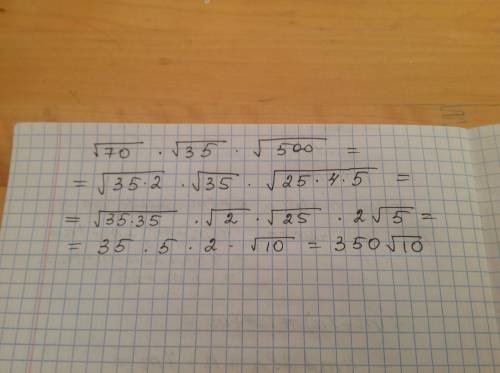 √70 · √35 · √500 =
= √35·2 · √35 · √25·4·5 =
= √35·35 · √2 · √25 · 2√5 =
= 35 · 5 · 2 · √10 = 350√10